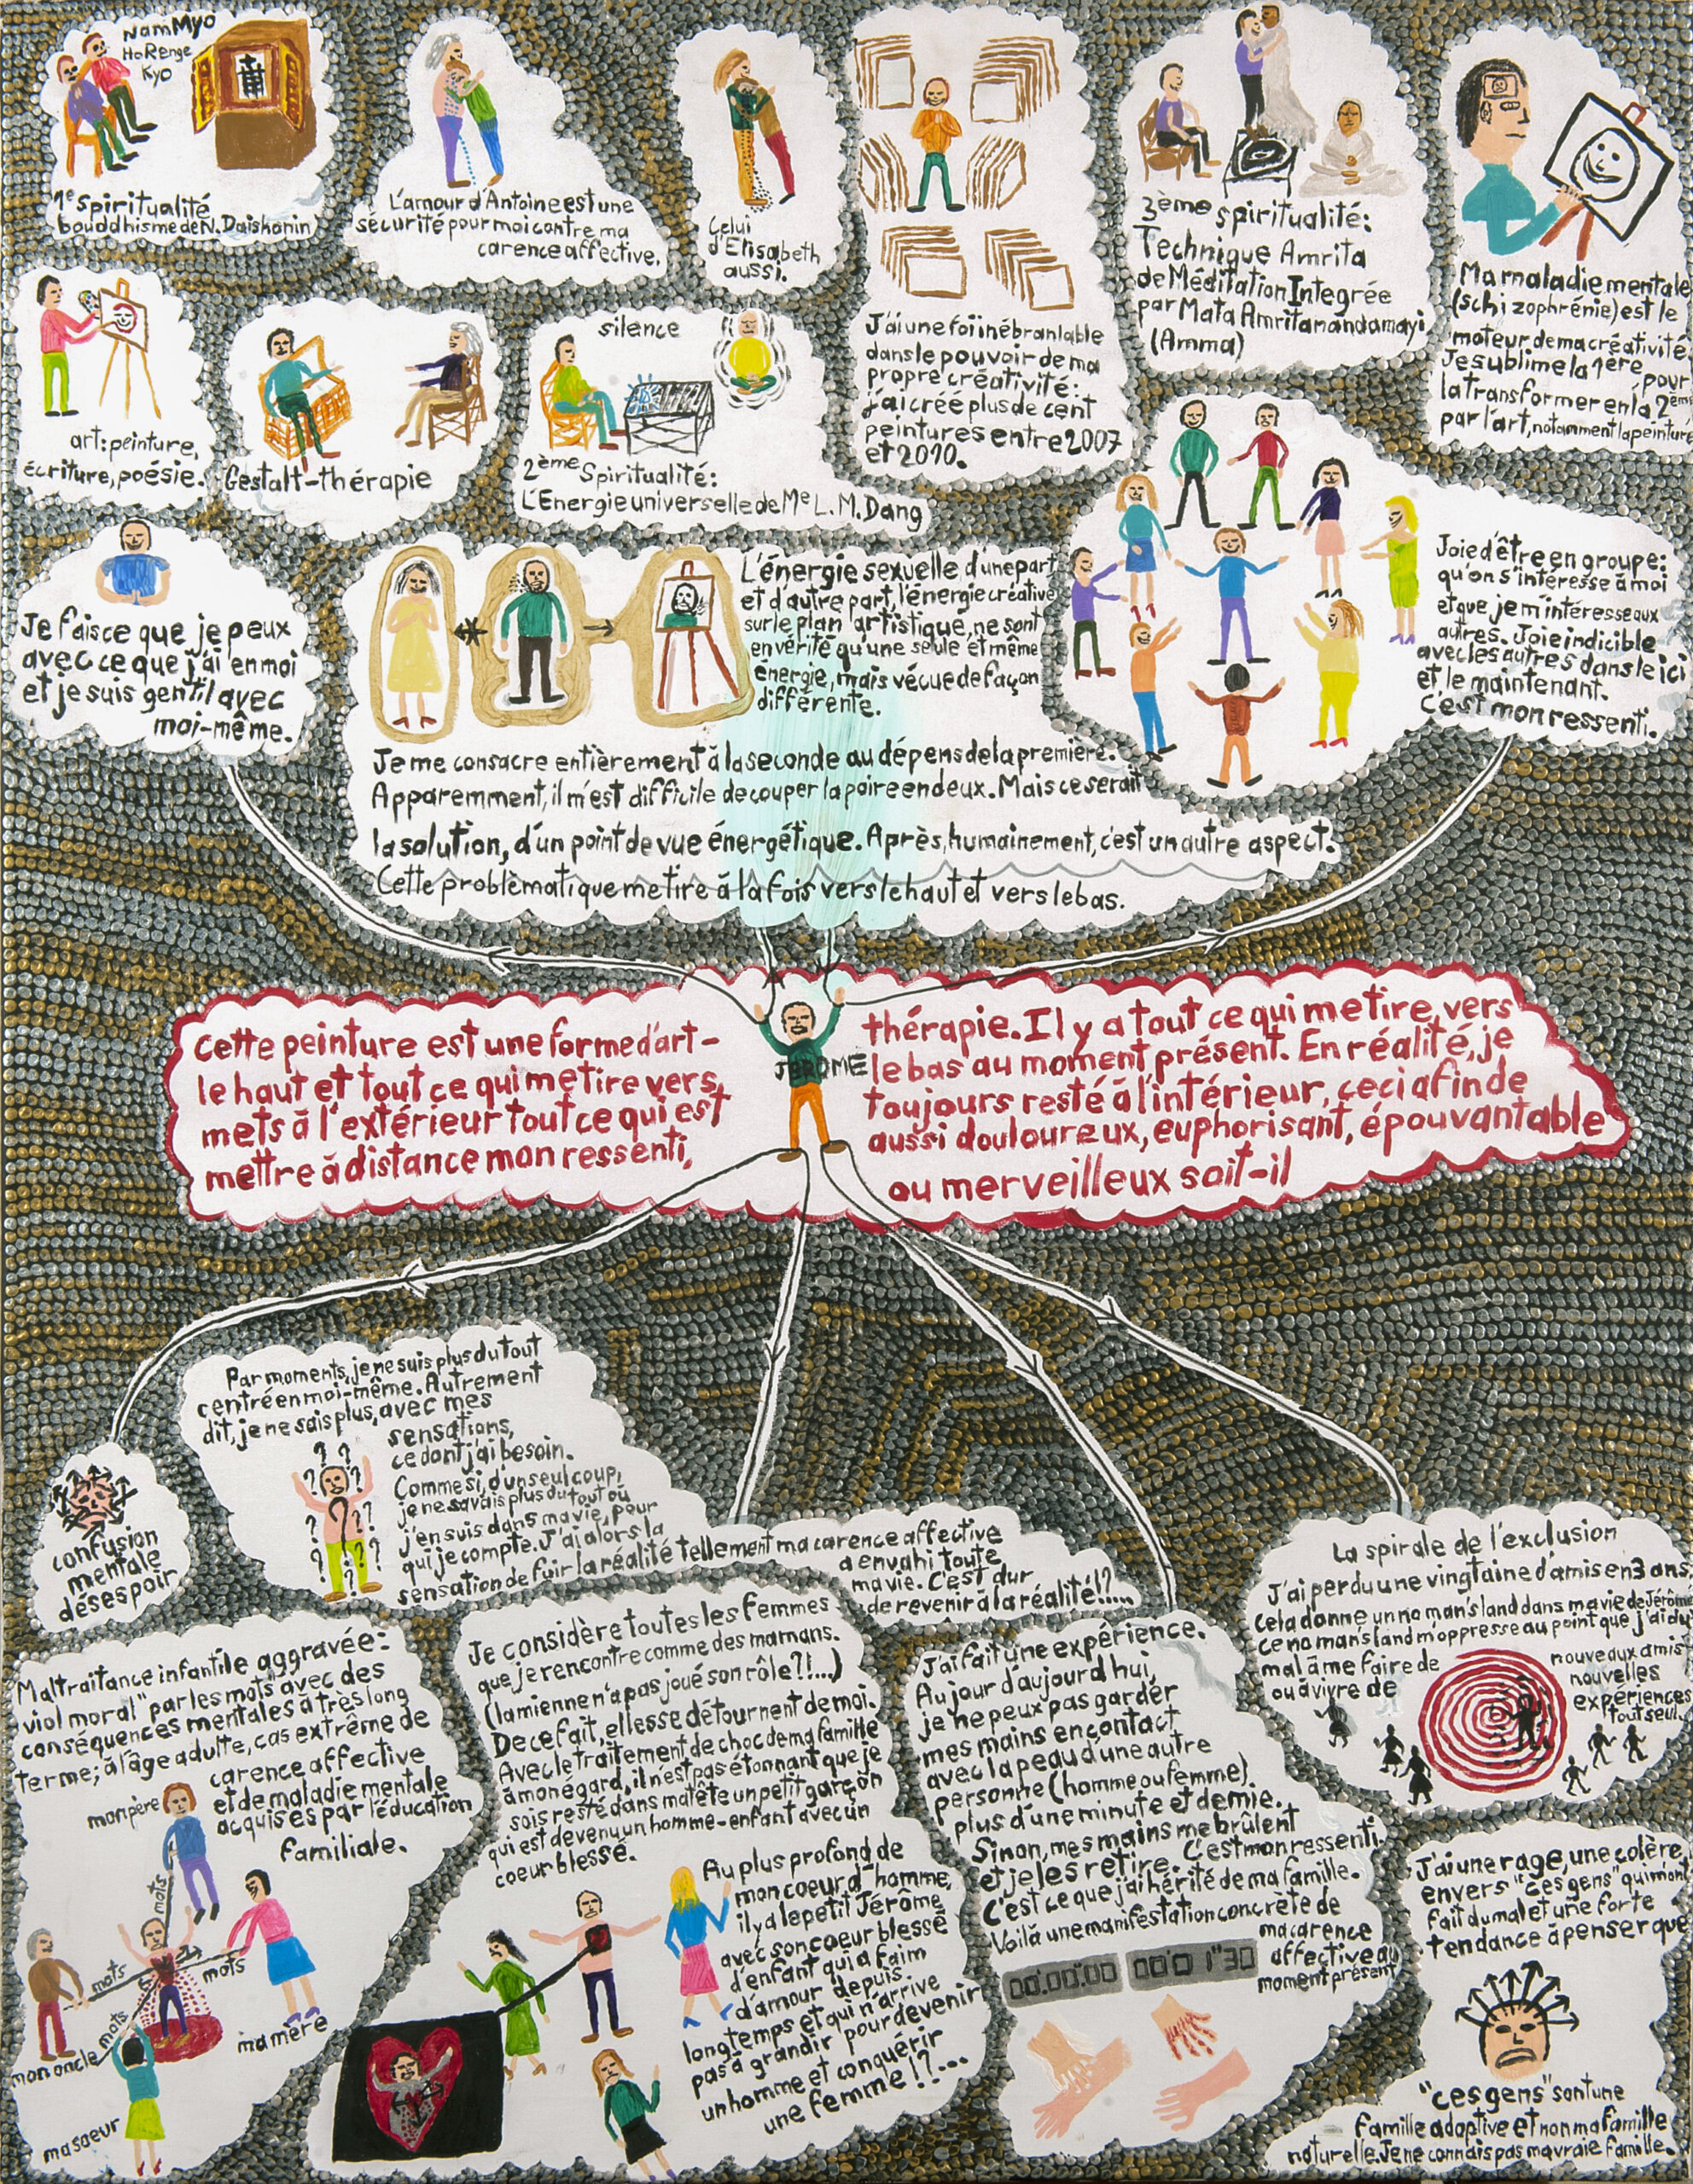 NamMyo
HoRenge
Kyo
1e Spiritualité
bouddhisme de N. Daishonin
L'amour d'Antoine est une
sécurité pour moi contre ma
carence affective.
Celui
d'Elisabeth
aussi.
J'ai une foi inébranlable
dans le pouvoir de ma
propre créativité:
j'ai créé plus de cent
peintures entre 2007
et 2010.
3ème spiritualité:
Technique Amrita
de Méditation Integrée
par Mata Amritanandamayi
(Amma)
Ma maladie mentale
(schizophrénie) est le
moteur de ma créativité.
Je sublime la 1ère pour
la transformer en la 2ème
par l'art, notamment la peinture
art: peinture,
écriture, poésie.
Gestalt-thérapie
silence
2ème Spiritualité:
L'Energie universelle de Me L.M. Dang
Je fais ce que je peux
avec ce que j'ai en moi
et je suis gentil avec
moi-même.
L'énergie sexuelle, d'une part,
et d'autre part, l'énergie créative
sur le plan artistique, ne sont
en vérité qu'une seule et même
énergie, mais vécue de façon
différente.
Je me consacre entièrement à la seconde au dépens de la première.
Apparemment, il m'est difficile de couper la poire en deux. Mais ce serait
la solution, d'un point de vue énergétique. Après, humainement, c'est un autre aspect.
Cette problèmatique me tire à la fois vers le haut et vers le bas.
Joie d'être en groupe:
qu'on s'intéresse à moi
et que je m'intéresse aux
autres. Joie indicible
avec les autres dans le ici
et le maintenant.
C'est mon ressenti.
Cette peinture est une forme d'art-
thérapie. Il y a tout ce qui me tire, vers
le haut et tout ce qui me tire vers,
JEROME
le bas au moment présent. En réalité, je
mets à l'extérieur tout ce qui est
toujours resté à l'intérieur, ceci afin de
mettre à distance mon ressenti,
aussi douloureux, euphorisant, épouvantable
ou merveilleux soit-il
Par moments, je ne suis plus du tout
centré en moi-même. Autrement
dit, je ne sais plus, avec mes
sensations,
ce dont j'ai besoin.
Comme si, d'un seul coup,
je ne savais plus du tout où
j'en suis dans ma vie, pour
qui je compte. J'ai alors la
sensation de fuir la réalité tellement ma carence affective
a envahi toute
ma vie. C'est dur
de revenir à la réalité!?....
confusion
mentale
désespoir
La spirale de l'exclusion
J'ai perdu une vingtaine d'amis en 3 ans.
Cela donne un no man's land dans ma vie de Jérôme
ce no man's land m'oppresse au point que j'ai du
mal à me faire de
nouveaux amis
ou à vivre de
nouvelles
expériences
tout seul.
Maltraitance infantile aggravée:
"viol moral" par les mots avec des
conséquences mentales à très long
terme; à l'âge adulte, cas extrême de
carence affective
et de maladie mentale
acquises par l'éducation
familiale.
mon père
mots
mots
mots
mots
mon oncle
ma mère
ma soeur
Je considère toutes les femmes
que je rencontre comme des mamans.
(la mienne n'a pas joué son rôle?!...)
De ce fait, elles se détournent de moi.
Avec le traitement de choc de ma famille
à mon égard, il n'est pas étonnant que je
sois resté dans ma tête un petit garçon
qui est devenu un homme-enfant avec un
coeur blessé.
Au plus profond de
mon coeur d'homme,
il y a le petit Jérôme
avec son coeur blessé
d'enfant qui a faim
d'amour depuis
longtemps et qui n'arrive
pas à grandir pour devenir
un homme et conquérir
une femme!?...
J'ai fait une expérience.
Au jour d'aujourd'hui,
je ne peux pas garder
mes mains en contact
avec la peau d'une autre
personne (homme ou femme)
plus d'une minute et demie.
Sinon, mes mains me brûlent
et je les retire. C'est mon ressenti.
C'est ce que j'ai hérité de ma famille.
Voilà une manifestation concrète de
ma carence
affective au
moment présent
00:00:00
00:01"30
J'ai une rage, une colère,
envers "ces gens" qui m'ont
fait du mal et une forte
tendance à penser que
"ces gens" sont une
famille adoptive et non ma famille
naturelle. Je ne connais pas ma vraie famille.